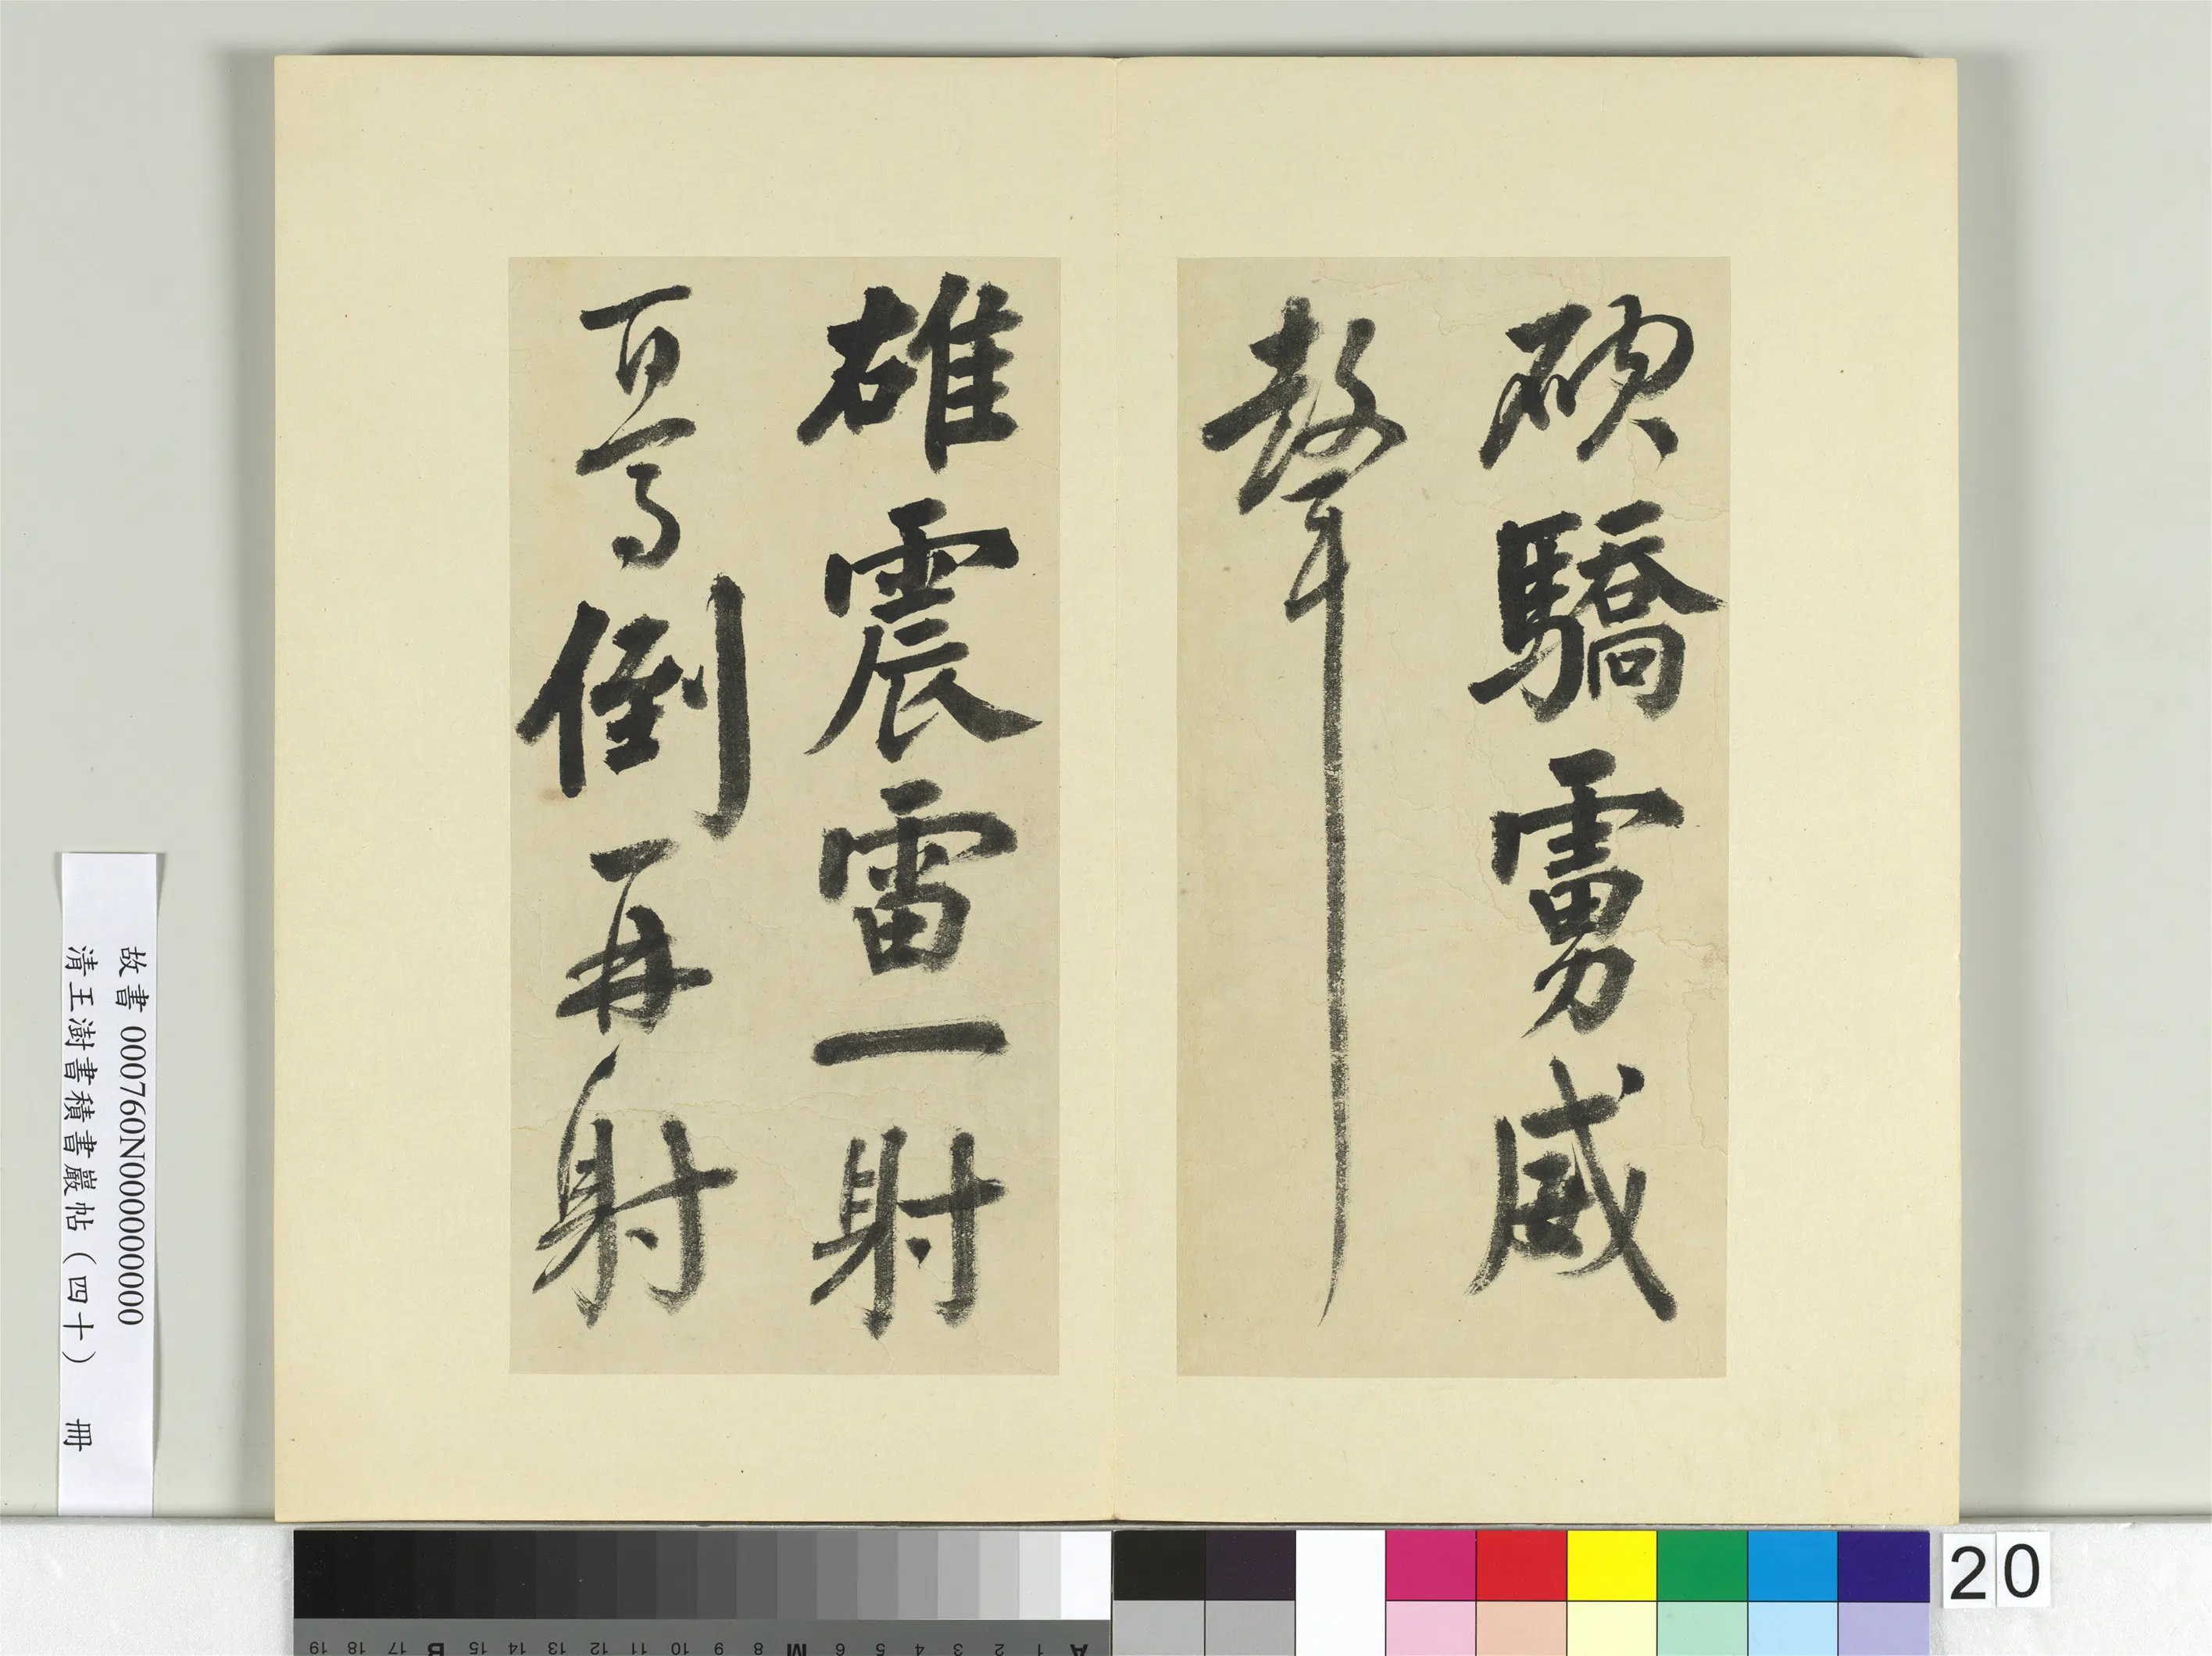 破驕虜威
聲
雄震雷一射
百馬倒再射
故書 000760N000000000
清王澍書積書巖帖（四十） 冊
20
A 1 2 3 4 5 6 M 8 9 10 11 12 13 14 15 B 17 18 19